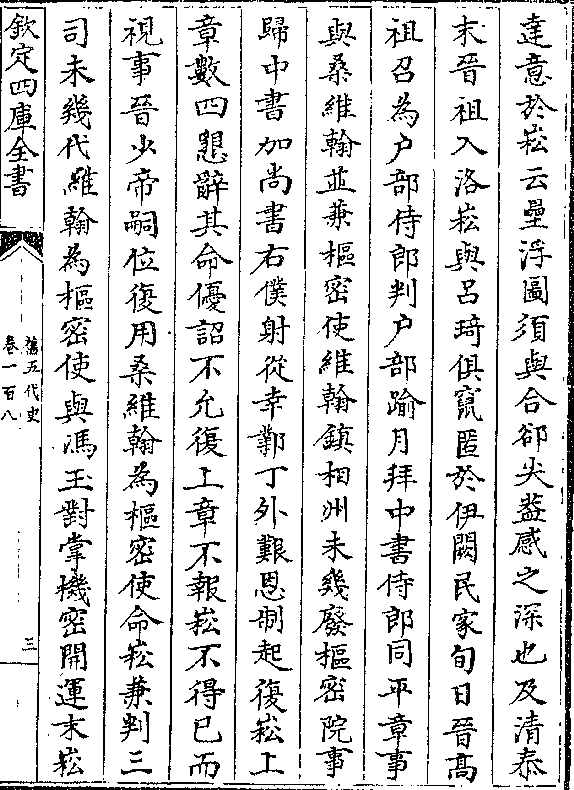 達意於崧云壘浮圖須與合郤尖葢感之深也及清泰
末晉祖入洛崧與呂琦俱竄匿於伊闕民家旬日晉髙
祖召為户部侍郎判户部踰月拜中書侍郎同平章事
與桑維翰並兼樞密使維翰鎮相州未幾廢樞密院事
歸中書加尚書右僕射從幸鄴丁外艱恩制起復崧上
章數四懇辭其命優詔不允復上章不報崧不得已而
視事晉少帝嗣位復用桑維翰為樞密使命崧兼判三
司未幾代維翰為樞密使與馮玉對掌機密開運末崧
欽定四庫全書
舊五代史
卷一百八
三